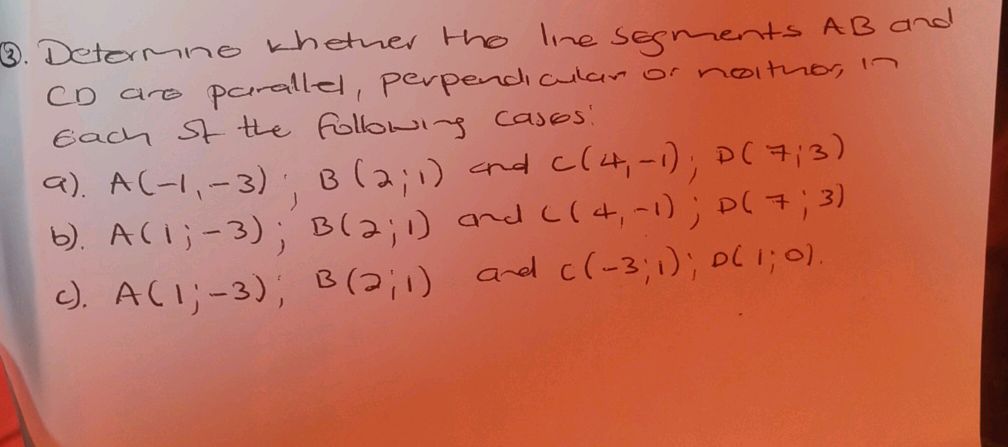 ③. Determine whether the line segments AB and
CD are parallel, perpendicular or neither, in
Each of the following cases:
a). A(-1,-3); B(2;1) and C(4,-1); D(7;3)
b). A(1;-3); B(2;1) and C(4,-1); D(7;3)
c). A(1;-3); B(2;1) and C(-3;1); D(1;0).